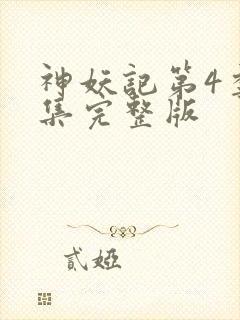 神妖記第4
集完整版
貳婭